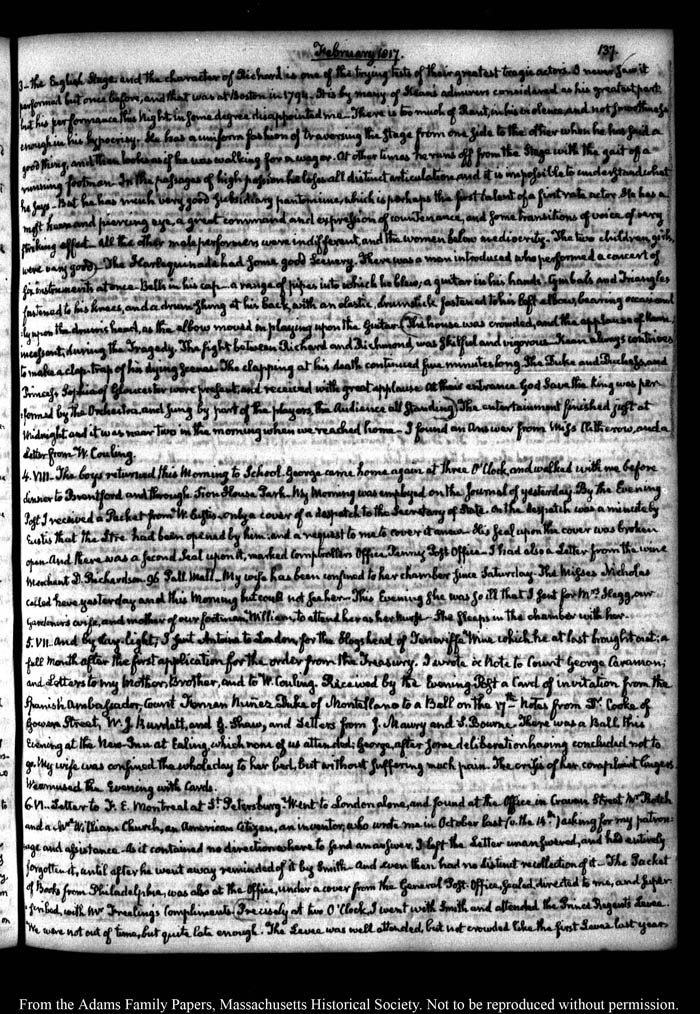 February 1817.
137.
3– the English Stage and the character of Richard is one of the trying tests of their greatest tragic actors. I never saw it
performed but once before, and that was at Boston in 1794. It is by many of Kean's admirers considered as his greatest part
but his performance this Night in some degree disappointed me– There is too much of Rant, in his violence, and not smoothness
enough in his hypocrisy. He has a uniform fashion of traversing the Stage from one side to the other when he has said a
good thing, and then looks as if he was walking for a wager. At other times he runs off from the Stage with the gait of a
running footman. In the passages of high passion he loses all distinct articulation and it is impossible to understand what
he says– But he has much very good subsidiary pantomime, which is perhaps the first talent of a first rate actor. He has a
most keen and piercing eye, a great command and expression of countenance, and some transitions of voice of very
striking effect– All the other male performers were indifferent, and the women below mediocrity. The two children, girls,
were very good– The Harlequinade had some good Scenery. There was a man introduced who performed a concert of
six instruments at once– Bells in his cap– a range of pipes into which he blew; a guitar in his hands; Cymbals and Triangles
fastened to his knees, and a drum slung at his back, with an elastic drumstick fastened to his left elbow, bearing occasional
ly upon the drum's head, as the elbow moved in playing upon the Guitar. (The house was crowded, and the applause of Kean
incessant, during the Tragedy. The fight between Richard and Richmond, was skilful and vigorous– Kean always contrives
to make a clap-trap of his dying scenes. The clapping at his death continued five minutes long. The Duke and Duchess, and
Princess Sophia of Gloucester were present, and received with great applause. At their entrance God Save the King was per
formed by the Orchestra, and sung by part of the players, the Audience all standing.) The entertainment finished just at
Midnight and it was near two in the morning when we reached home– I found an answer from Miss Clitherow, and a
Letter from W. Couling.
4. VIII– The boys returned this Morning to School. George came home again at three O'Clock, and walked with me before
dinner to Brentford and through Sion House Park– My Morning was employed on the Journal of yesterday. By the Evening
Post I received a Packet from W. Eustis– only a cover of a despatch to the Secretary of State. On the despatch was a minute by
Eustis that the had been opened by him, and a request to me to cover it anew– His Seal upon the cover was broken
open. And there was a second Seal upon it, marked Comptrollers Office. Penny Post Office– I had also a Letter from the wine
Merchant D. Richardson 96 Pall Mall– My wife has been confined to her chamber since Saturday– The Misses Nicholas
called here yesterday and this Morning but could not see her– This Evening she was so ill that I sent for Mrs Clegg, our
Gardener's wife, and mother of our footman, William, to attend her as her Nurse– She sleeps in the chamber with her.
5. VII– And by day-light, I sent Antoine to London, for the Hogshead of Teneriffe Wine which he at last brought out; a
full Month after the first application for the order from the Treasury. I wrote a Note to Count George Caraman;
and Letters to my Mother, Brother, and to W. Couling. Received by the Evening Post a Card of invitation from the
Spanish Ambassador, Count Fernan Nunez Duke of Montellano to a Ball on the 17th– Notes from Dr Cooke of
Gower Street, W. J. Burdett, and G. Shaw, and Letters from J. Maury and S. Bourne. There was a Ball this
Evening at the New-Inn at Ealing, which none of us attended; George, after some deliberation having concluded not to
go. My wife was confined the whole day to her bed, but without suffering much pain. The crisis of her complaint lingers.
We amused the Evening with Cards.
6. VI– Letter to F. E. Montreal at St Petersburg. Went to London alone, and found at the Office in Craven Street Mr Rotch
and a Mr William Church, an American Citizen, an inventor, who wrote me in October last (v. the 14th) asking for my patron-
age and assistance– As it contained no direction where to send an answer, I left the Letter unanswered, and had entirely
forgotten it, until after he went away reminded of it by Smith– And even then had no distinct recollection of it– The Packet
of Books from Philadelphia, was also at the Office, under a cover from the General Post-Office, sealed, directed to me, and super-
scribed, with Mr Freelings Compliments. Precisely at two O'Clock, I went with Smith and attended the Prince Regent's Levee.
We were not out of time, but quite late enough. The Levee was well attended, but not crowded like the first Levee last year–
From the Adams Family Papers, Massachusetts Historical Society. Not to be reproduced without permission.